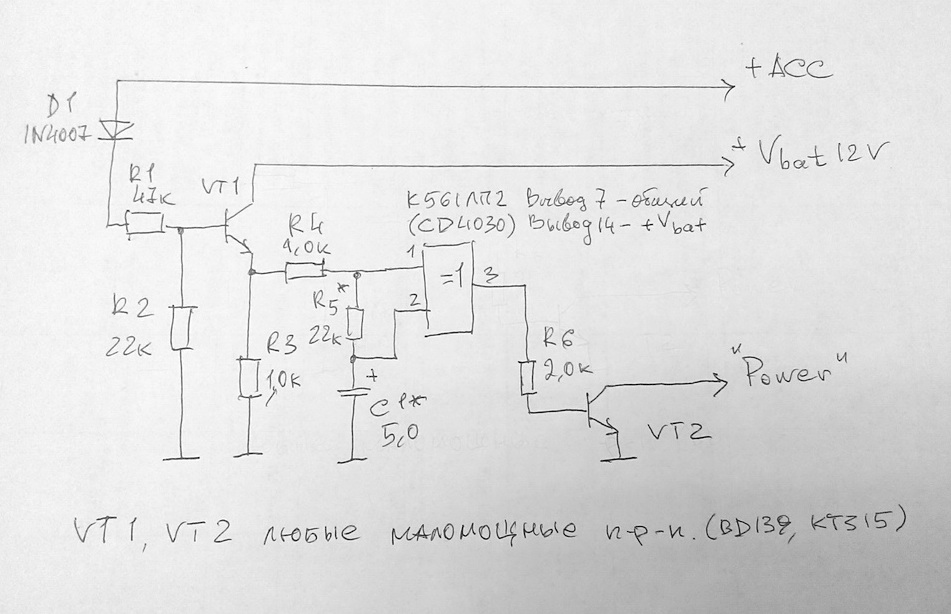 + ACC
D1
1N4007
+ Vbat 12V
R1
47к
VT1
К561ЛП2 Вывод 7 - общий
(CD4030) Вывод 14 - +Vbat
R4
1,0к
1
=1
3
R5*
22к
2
R2
22к
R3
1,0к
+
C1*
5,0
R6
2,0к
"Power"
VT2
VT1, VT2 любые маломощные n-p-n. (BD139, КТ315)